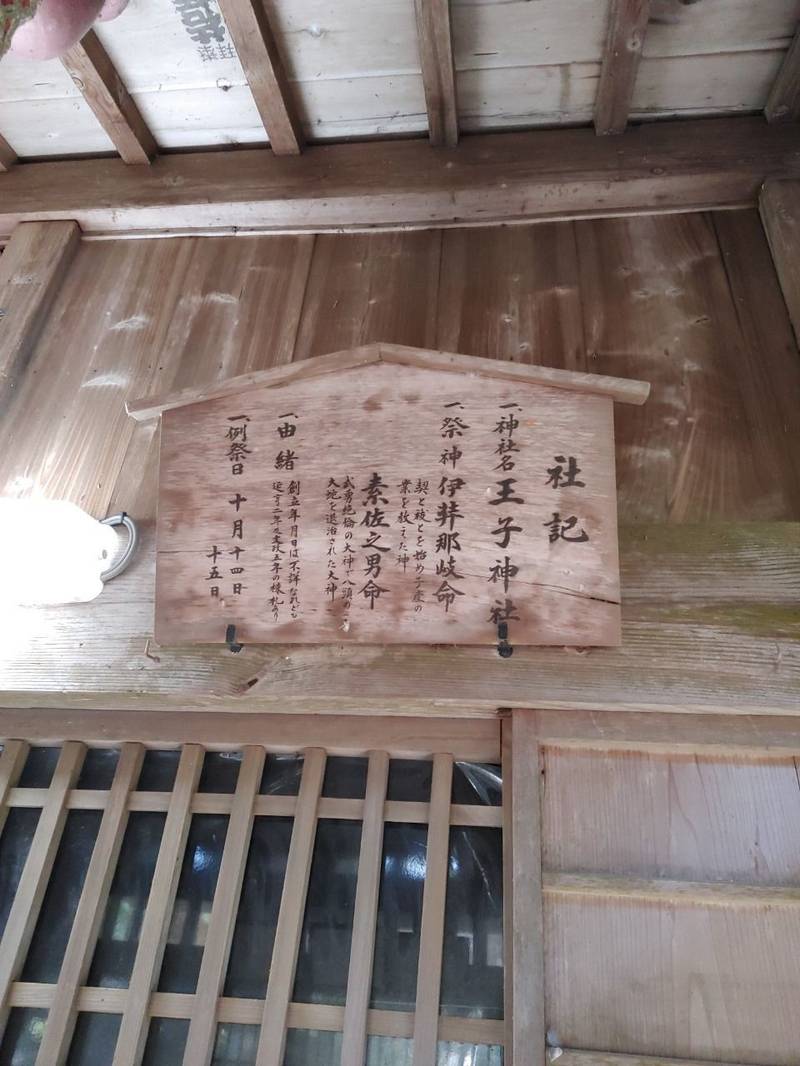 社記
一、神社名 王子神社
一、祭神 伊弉那岐命
契と禊とを始め子産の
業を教えた神
素佐之男命
武勇絶倫の大神で八頭の
大蛇を退治された大神
一、由緒 創立年月日は不詳なれども
延享二年及文政五年の棟札あり
一、例祭日 十月十四日
十五日
拝殿